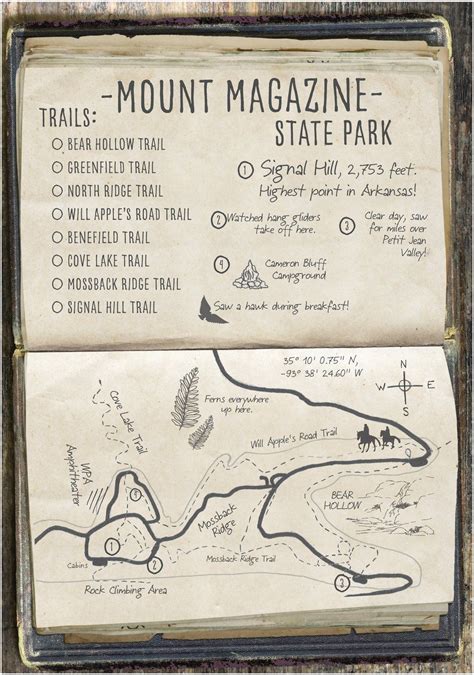 -MOUNT MAGAZINE-
STATE PARK
TRAILS:
BEAR HOLLOW TRAIL
GREENFIELD TRAIL
NORTH RIDGE TRAIL
WILL APPLE'S ROAD TRAIL
BENEFIELD TRAIL
COVE LAKE TRAIL
MOSSBACK RIDGE TRAIL
SIGNAL HILL TRAIL
1 Signal Hill, 2,753 feet.
Highest point in Arkansas!
2 Watched hang gliders
take off here.
3 Clear day, saw
for miles over
Petit Jean
Valley!
4 Cameron Bluff
Campground
Saw a hawk during breakfast!
35° 10' 0.75" N,
-93° 38' 24.60" W
N
W E
S
Ferns everywhere
up here.
Cove Lake Trail
Will Apple's Road Trail
WPA
Amphitheater
BEAR
HOLLOW
Mossback
Ridge
1
2
3
Cabins
Mossback Ridge Trail
Rock Climbing Area